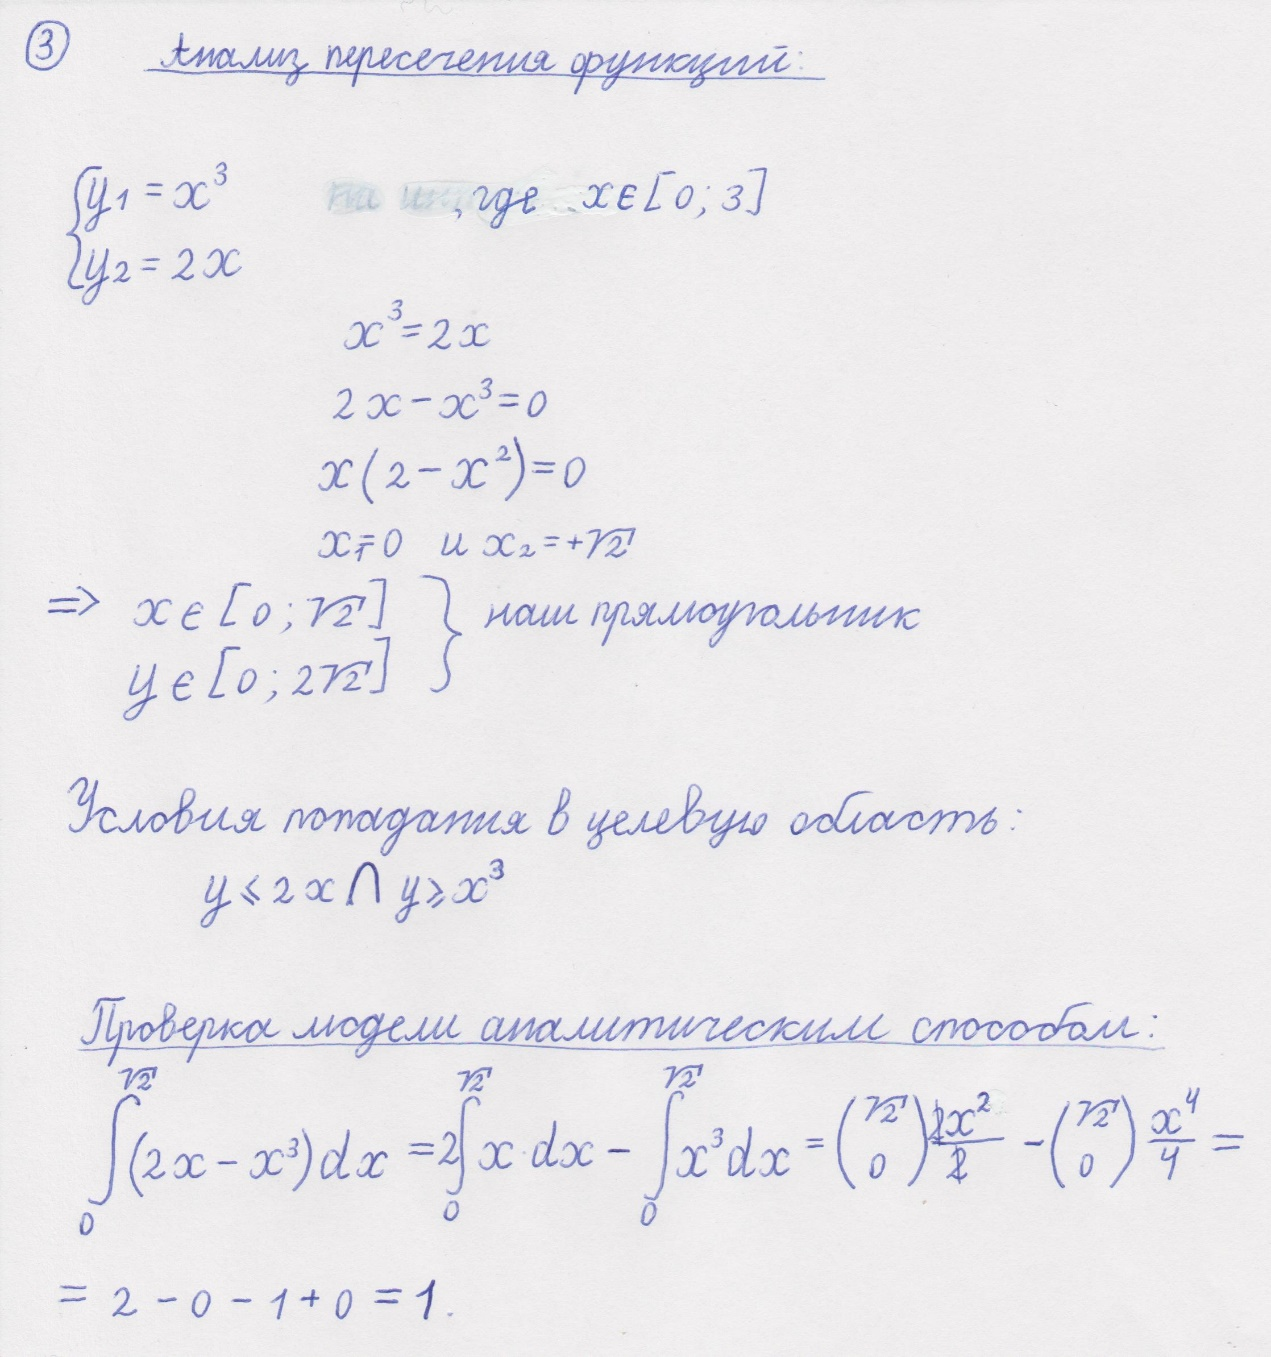 3 Анализ пересечения функций:
{y1 = x³ , где x ∈ [0; 3]
{y2 = 2x
x³ = 2x
2x − x³ = 0
x(2 − x²) = 0
x₁ = 0 и x₂ = +√2
=> x ∈ [0; √2] } наш прямоугольник
y ∈ [0; 2√2]
Условия попадания в целевую область:
y ⩽ 2x ∩ y ⩾ x³
Проверка модели аналитическим способом:
∫₀^√2 (2x − x³) dx = 2∫₀^√2 x · dx − ∫₀^√2 x³ dx = (√2 0) 2x²/2 − (√2 0) x⁴/4 =
= 2 − 0 − 1 + 0 = 1.